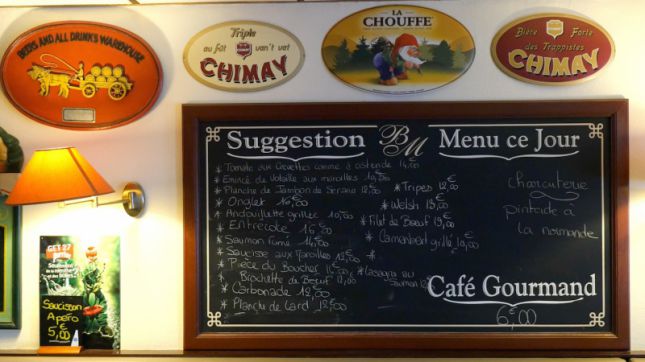 BEERS AND ALL DRINKS WAREHOUSE
Triple
au fût van't vat
CHIMAY
LA
CHOUFFE
Bière Forte
des Trappistes
CHIMAY
Suggestion BM Menu ce Jour
* Tomate aux Crevettes comme à ostende 14,00
* Emincé de Volaille aux maroilles 10,00
* Planche de Jambon de Serrano 12,00€
* Onglet 16,00
* Andouillette grillée 10,00
* Entrecote 16,00
* Saumon fumé 14,00
* Saucisse aux Maroilles 12,00
* Pièce du Boucher
* Brochette de Boeuf 12,00
* Carbonade 12,00€
* Planche de Lard 12,00
* Tripes 12,00€
* Welsh 13,00
* Filet de Boeuf 19,00€
* Camembert grillé 10,00
* Lasagne au
Saumon
charcuterie
pintade à
la normande
Café Gourmand
6,00€
GET 27
Saucisson
Apero
5,00€